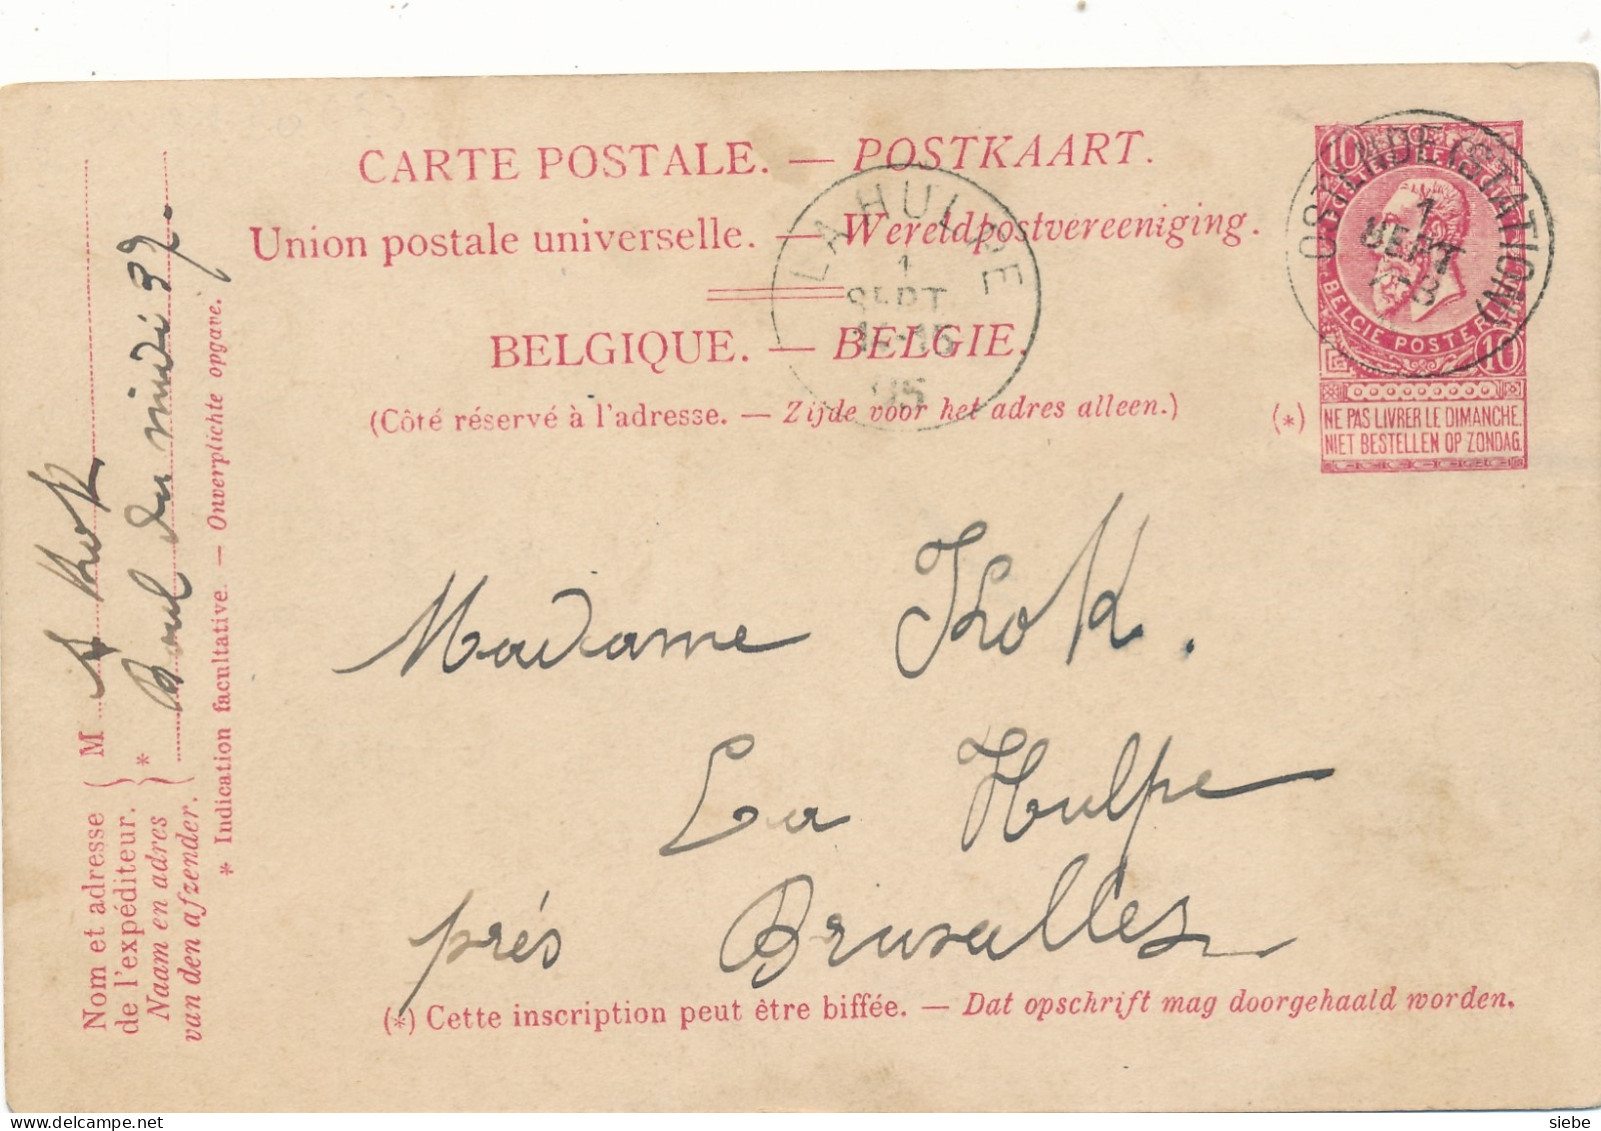 CARTE POSTALE. — POSTKAART.
Union postale universelle. — Wereldpostvereeniging.
BELGIQUE. — BELGIE.
(Côté réservé à l'adresse. — Zijde voor het adres alleen.)
LA HULPE
1
SEPT
05
OSTENDE (STATION)
1
SEPT
10 10
BELGIE POSTE
10
(*) NE PAS LIVRER LE DIMANCHE.
NIET BESTELLEN OP ZONDAG.
Madame Kok.
La Hulpe
près Bruxelles
(*) Cette inscription peut être biffée. — Dat opschrift mag doorgehaald worden.
Nom et adresse
de l'expéditeur.
Naam en adres
van den afzender.
M A Kok
* Boul du midi 39.
* Indication facultative. — Onverplichte opgave.
siebe